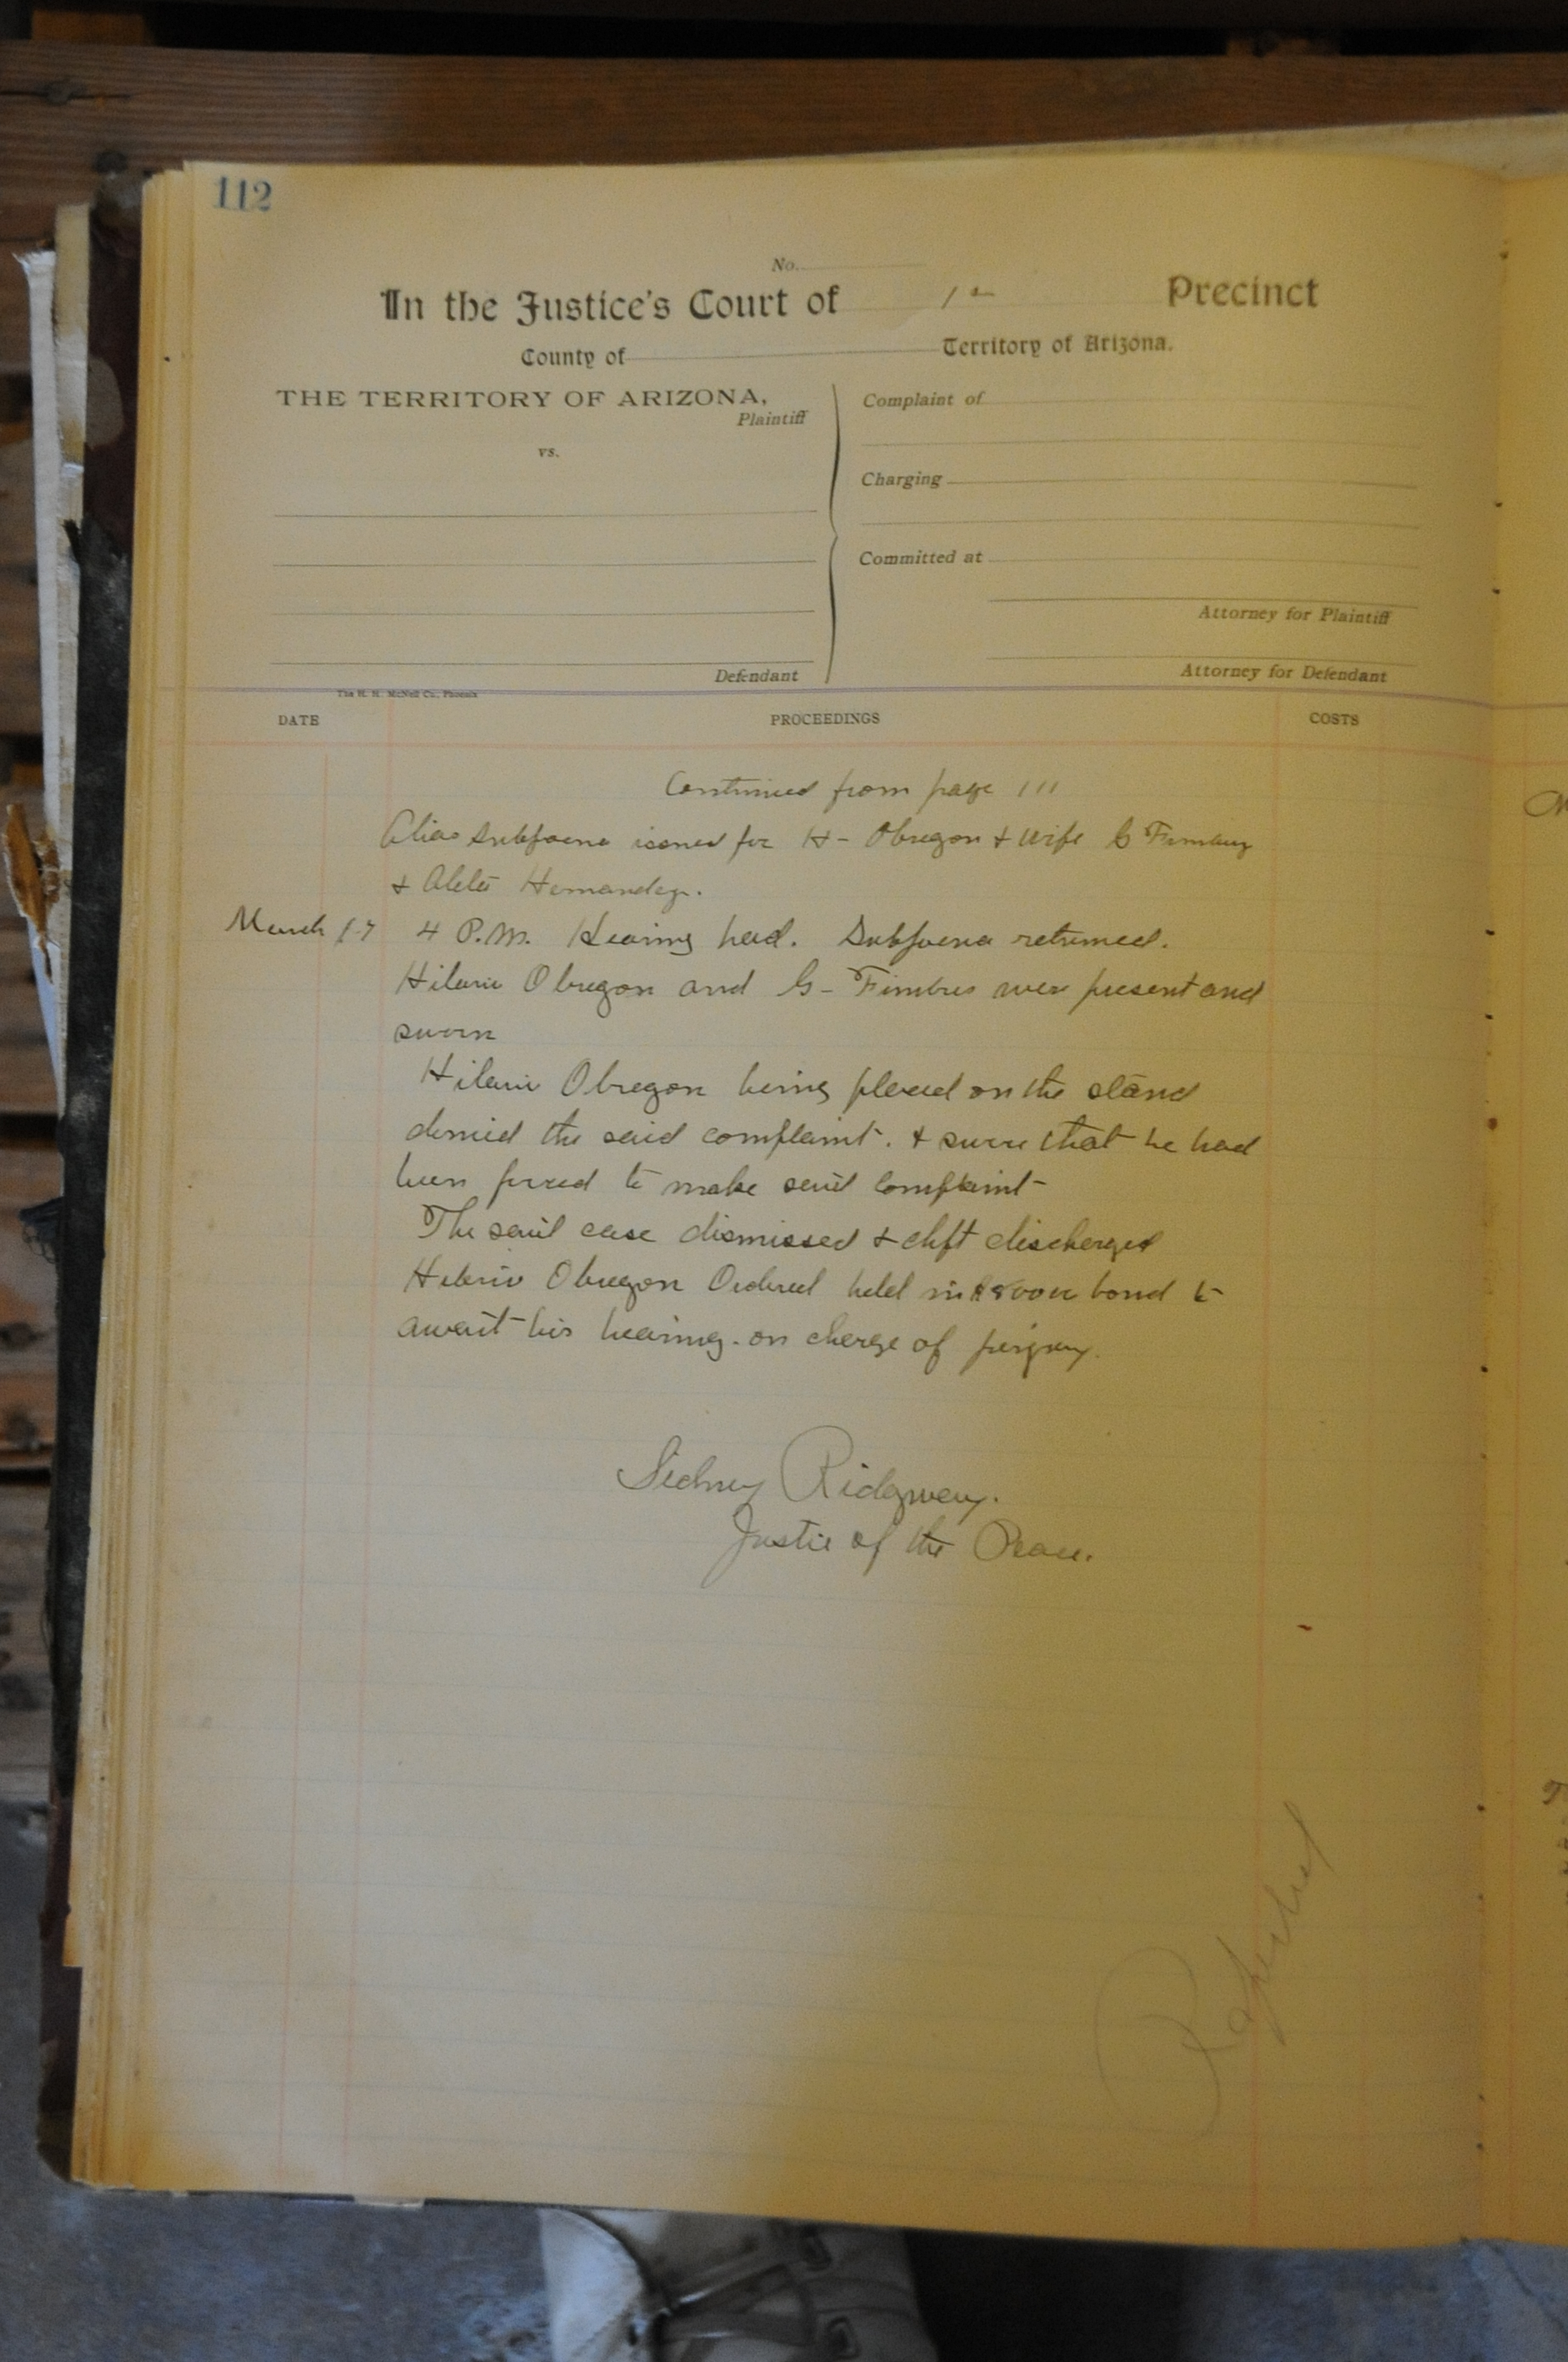 112
No.
In the Justice's Court of 1st Precinct
County of Territory of Arizona.
THE TERRITORY OF ARIZONA,
Plaintiff
vs.
Defendant
Complaint of
Charging
Committed at
Attorney for Plaintiff
Attorney for Defendant
The H. H. McNeil Co., Phoenix
DATE PROCEEDINGS COSTS
Continued from page 111
Alias Subpoena issued for H- Obregon & wife G
& Hernandez.
March 17 4 P.M. Hearing had. Subpoena returned.
Hilario Obregon and G- Fimbres were present and
sworn
Hilario Obregon being placed on the stand
denied the said complaint. & swore that he had
been forced to make said complaint-
The said case dismissed & dft discharged
Hilario Obregon Ordered held in bond to
await his hearing. on charge of perjury.
Sidney Ridgway.
Justice of the Peace.